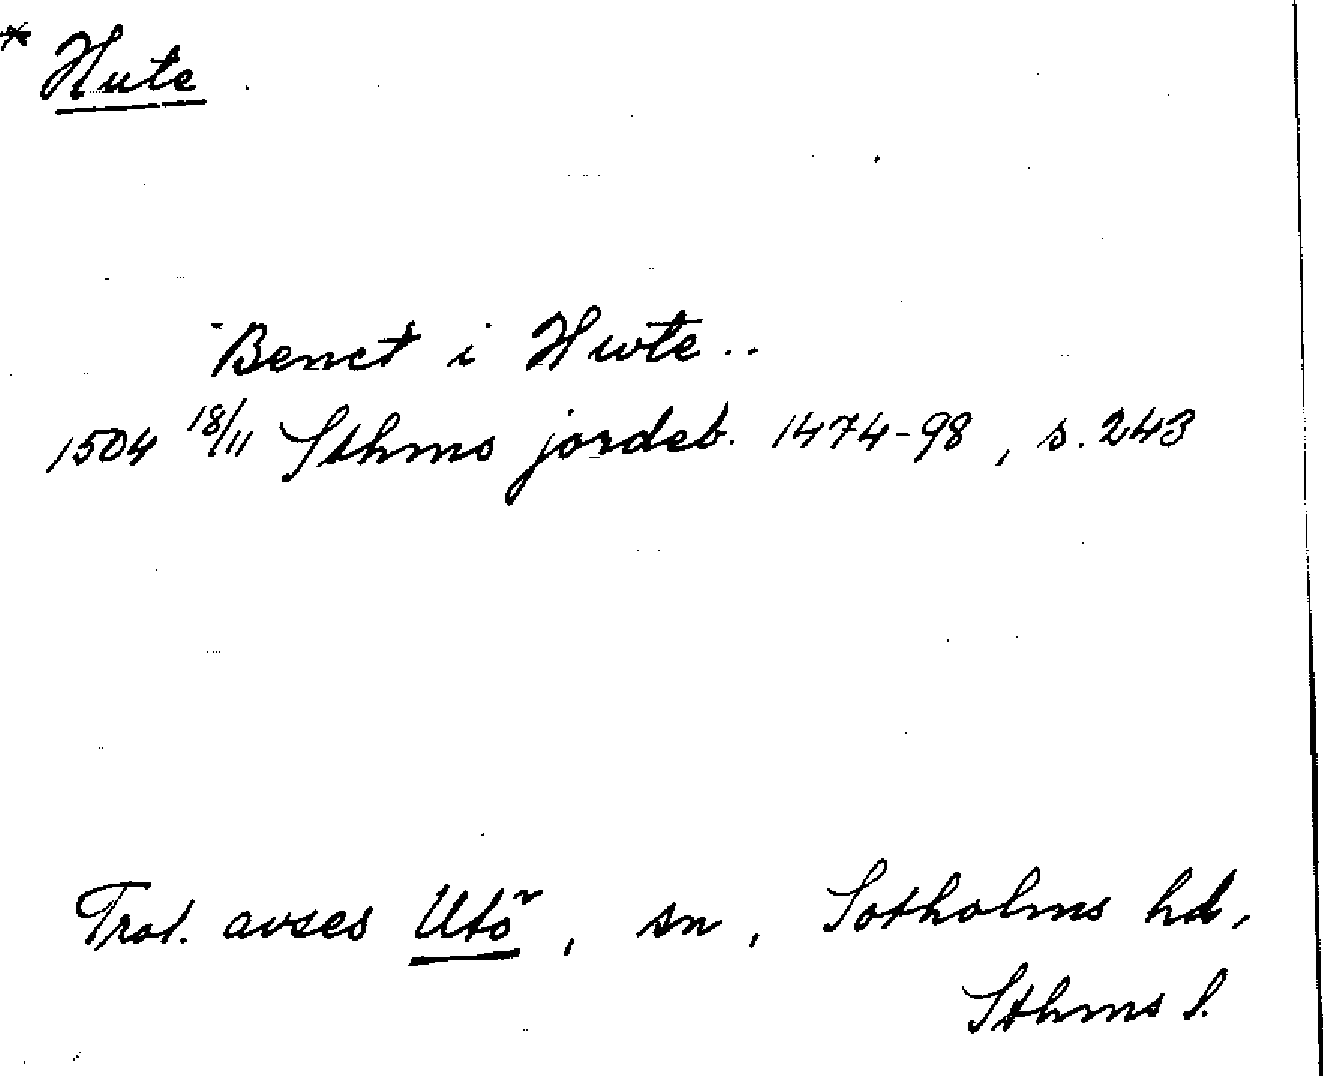 * Hute
Benct i Hwte..
1504 18/11 Sthms jordeb. 1474-98, s. 243
Trol. avses Utö, sn, Sotholms hd,
Sthms l.